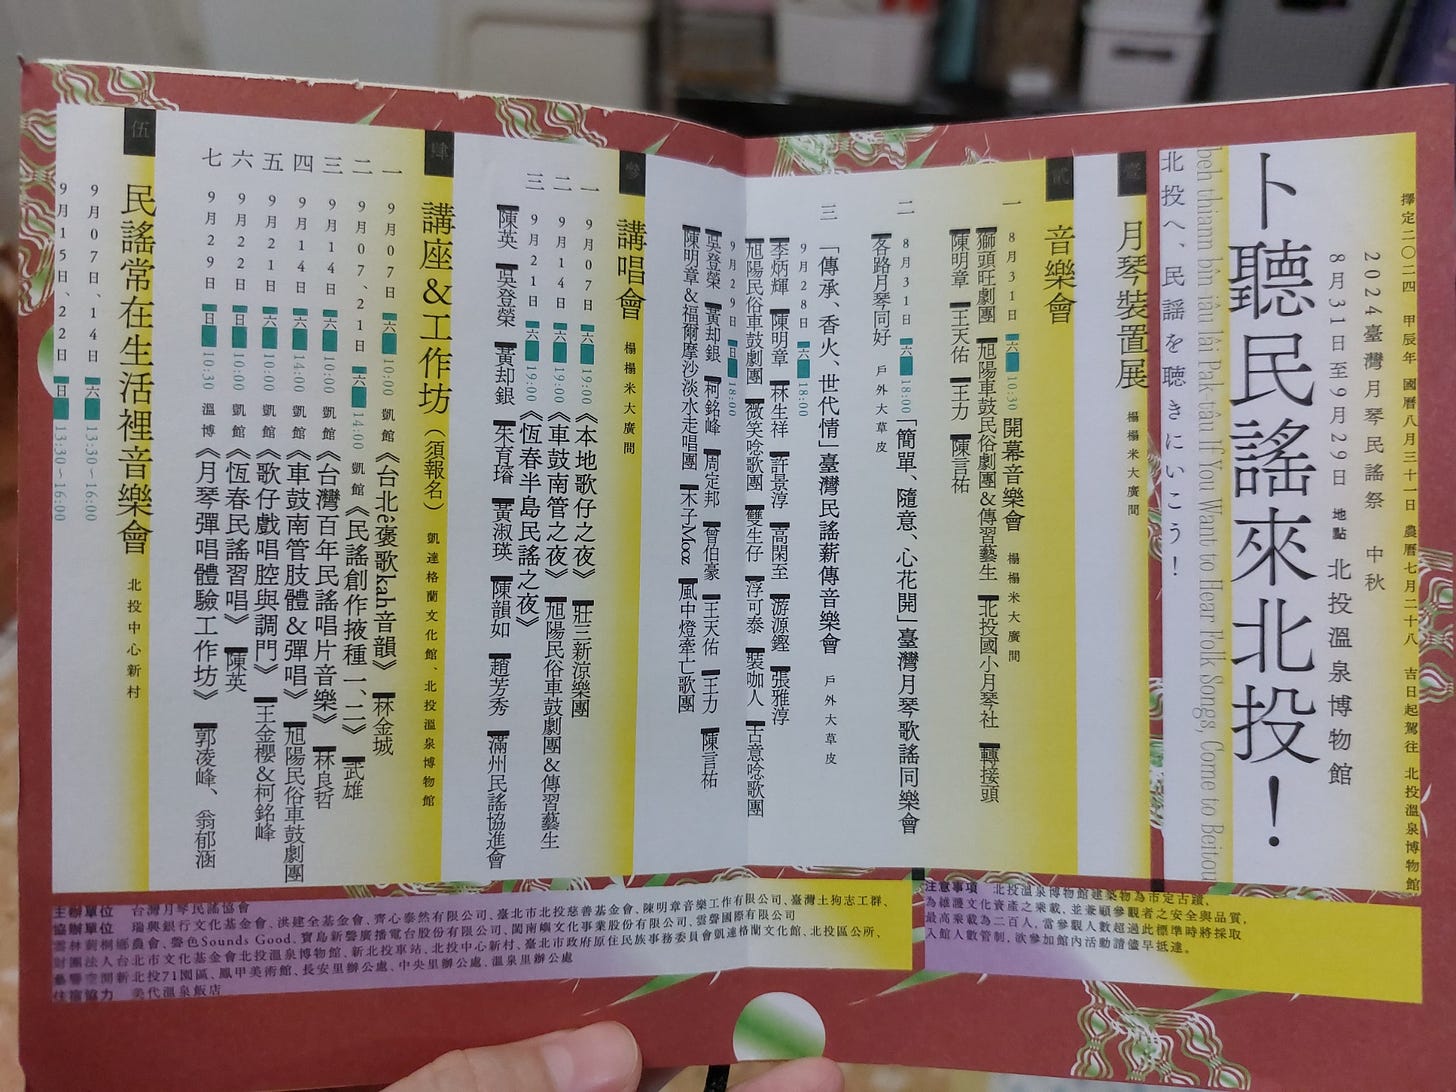 擇定二〇二四 甲辰年 國曆八月三十一日 農曆七月二十八 吉日起駕往 北投溫泉博物館
2024臺灣月琴民謠祭 中秋
8月31日至9月29日 地點 北投溫泉博物館
卜聽民謠來北投！
beh thiann bîn-iâu lâi Pak-tâu If You Want to Hear Folk Songs, Come to Beitou
北投へ、民謡を聴きにいこう！
壹
月琴裝置展 榻榻米大廣間
貳
音樂會
一 8月31日 六 10:30 開幕音樂會 榻榻米大廣間
獅頭旺劇團 旭陽車鼓民俗劇團&傳習藝生 北投國小月琴社 轉接頭
陳明章 王天佑 王力 陳言祐
二 8月31日 六 18:00 「簡單、隨意、心花開」臺灣月琴歌謠同樂會
各路月琴同好 戶外大草皮
三 「傳承、香火、世代情」臺灣民謠薪傳音樂會 戶外大草皮
9月28日 六 18:00
李炳輝 陳明章 林生祥 許景淳 高閑至 游源鏗 張雅淳
旭陽民俗車鼓劇團 微笑唸歌團 雙生仔 浮可泰 裝咖人 古意唸歌團
9月29日 日 18:00
吳登榮 黃却銀 柯銘峰 周定邦 曾伯豪 王天佑 王力 陳言祐
陳明章&福爾摩沙淡水走唱團 木子Mooz 風中燈牽亡歌團
參
講唱會 榻榻米大廣間
一 9月07日 六 19:00 《本地歌仔之夜》 壯三新涼樂團
二 9月14日 六 19:00 《車鼓南管之夜》 旭陽民俗車鼓劇團&傳習藝生
三 9月21日 六 19:00 《恆春半島民謠之夜》
陳英 吳登榮 黃却銀 朱育瑢 黃淑瑛 陳韻如 趙芳秀 滿州民謠協進會
肆
講座&工作坊（須報名） 凱達格蘭文化館、北投溫泉博物館
一 9月07日 六 10:00 凱館 《台北ê褒歌kah音韻》 林金城
二 9月07、21日 六 14:00 凱館 《民謠創作掖種一、二》 武雄
三 9月14日 六 10:00 凱館 《台灣百年民謠唱片音樂》 林良哲
四 9月14日 六 14:00 凱館 《車鼓南管肢體&彈唱》 旭陽民俗車鼓劇團
五 9月21日 六 10:00 凱館 《歌仔戲唱腔與調門》 王金櫻&柯銘峰
六 9月22日 日 10:00 凱館 《恆春民謠習唱》 陳英
七 9月29日 日 10:30 溫博 《月琴彈唱體驗工作坊》 郭淩峰、翁郁涵
伍
民謠常在生活裡音樂會 北投中心新村
9月07日、14日 六 13:30~16:00
9月15日、22日 日 13:30~16:00
注意事項 北投溫泉博物館建築物為市定古蹟，
為維護文化資產之乘載，並兼顧參觀者之安全與品質，
最高乘載為二百人，當參觀人數超過此標準時將採取
入館人數管制，欲參加館內活動請儘早抵達。
主辦單位 台灣月琴民謠協會
協辦單位 瑞興銀行文化基金會、洪建全基金會、齊心泰然有限公司、臺北市北投慈善基金會、陳明章音樂工作有限公司、臺灣土狗志工群、
雲林莿桐鄉農會、聲色Sounds Good、寶島新聲廣播電台股份有限公司、閩南嶼文化事業股份有限公司、雲聲國際有限公司
財團法人台北市文化基金會北投溫泉博物館、新北投車站、北投中心新村、臺北市政府原住民族事務委員會凱達格蘭文化館、北投區公所、
藝響空間新北投71園區、鳳甲美術館、長安里辦公處、中央里辦公處、溫泉里辦公處
住宿協力 美代溫泉飯店